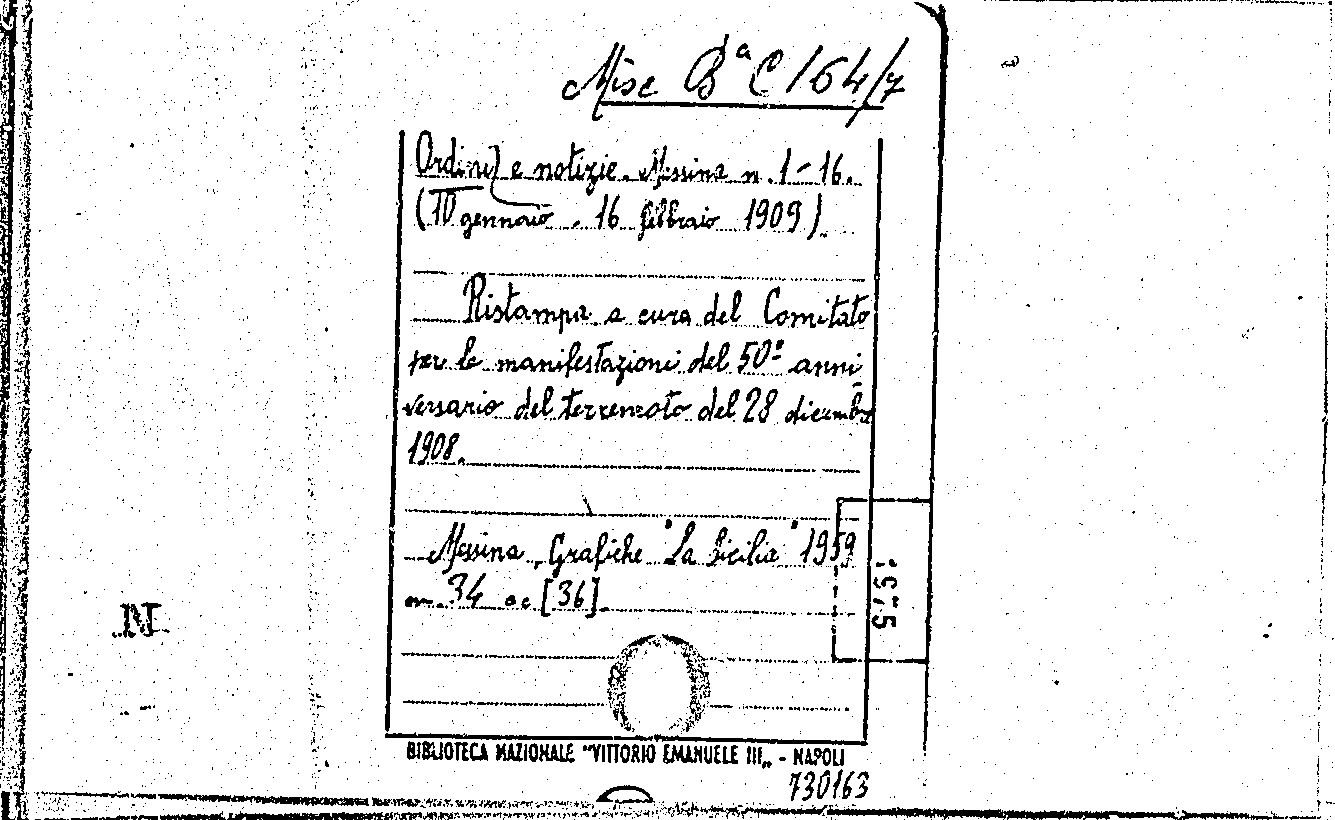 Misc Bª C 164/7
Ordini e notizie. Messina n. 1-16.
(10 gennaio - 16 febbraio 1909).
Ristampa a cura del Comitato
per le manifestazioni del 50º anni
versario del terremoto del 28 dicembre
1908.
Messina, Grafiche "La Sicilia" 1959
34 [36].
5,5
N
BIBLIOTECA NAZIONALE "VITTORIO EMANUELE III„ - NAPOLI
730163